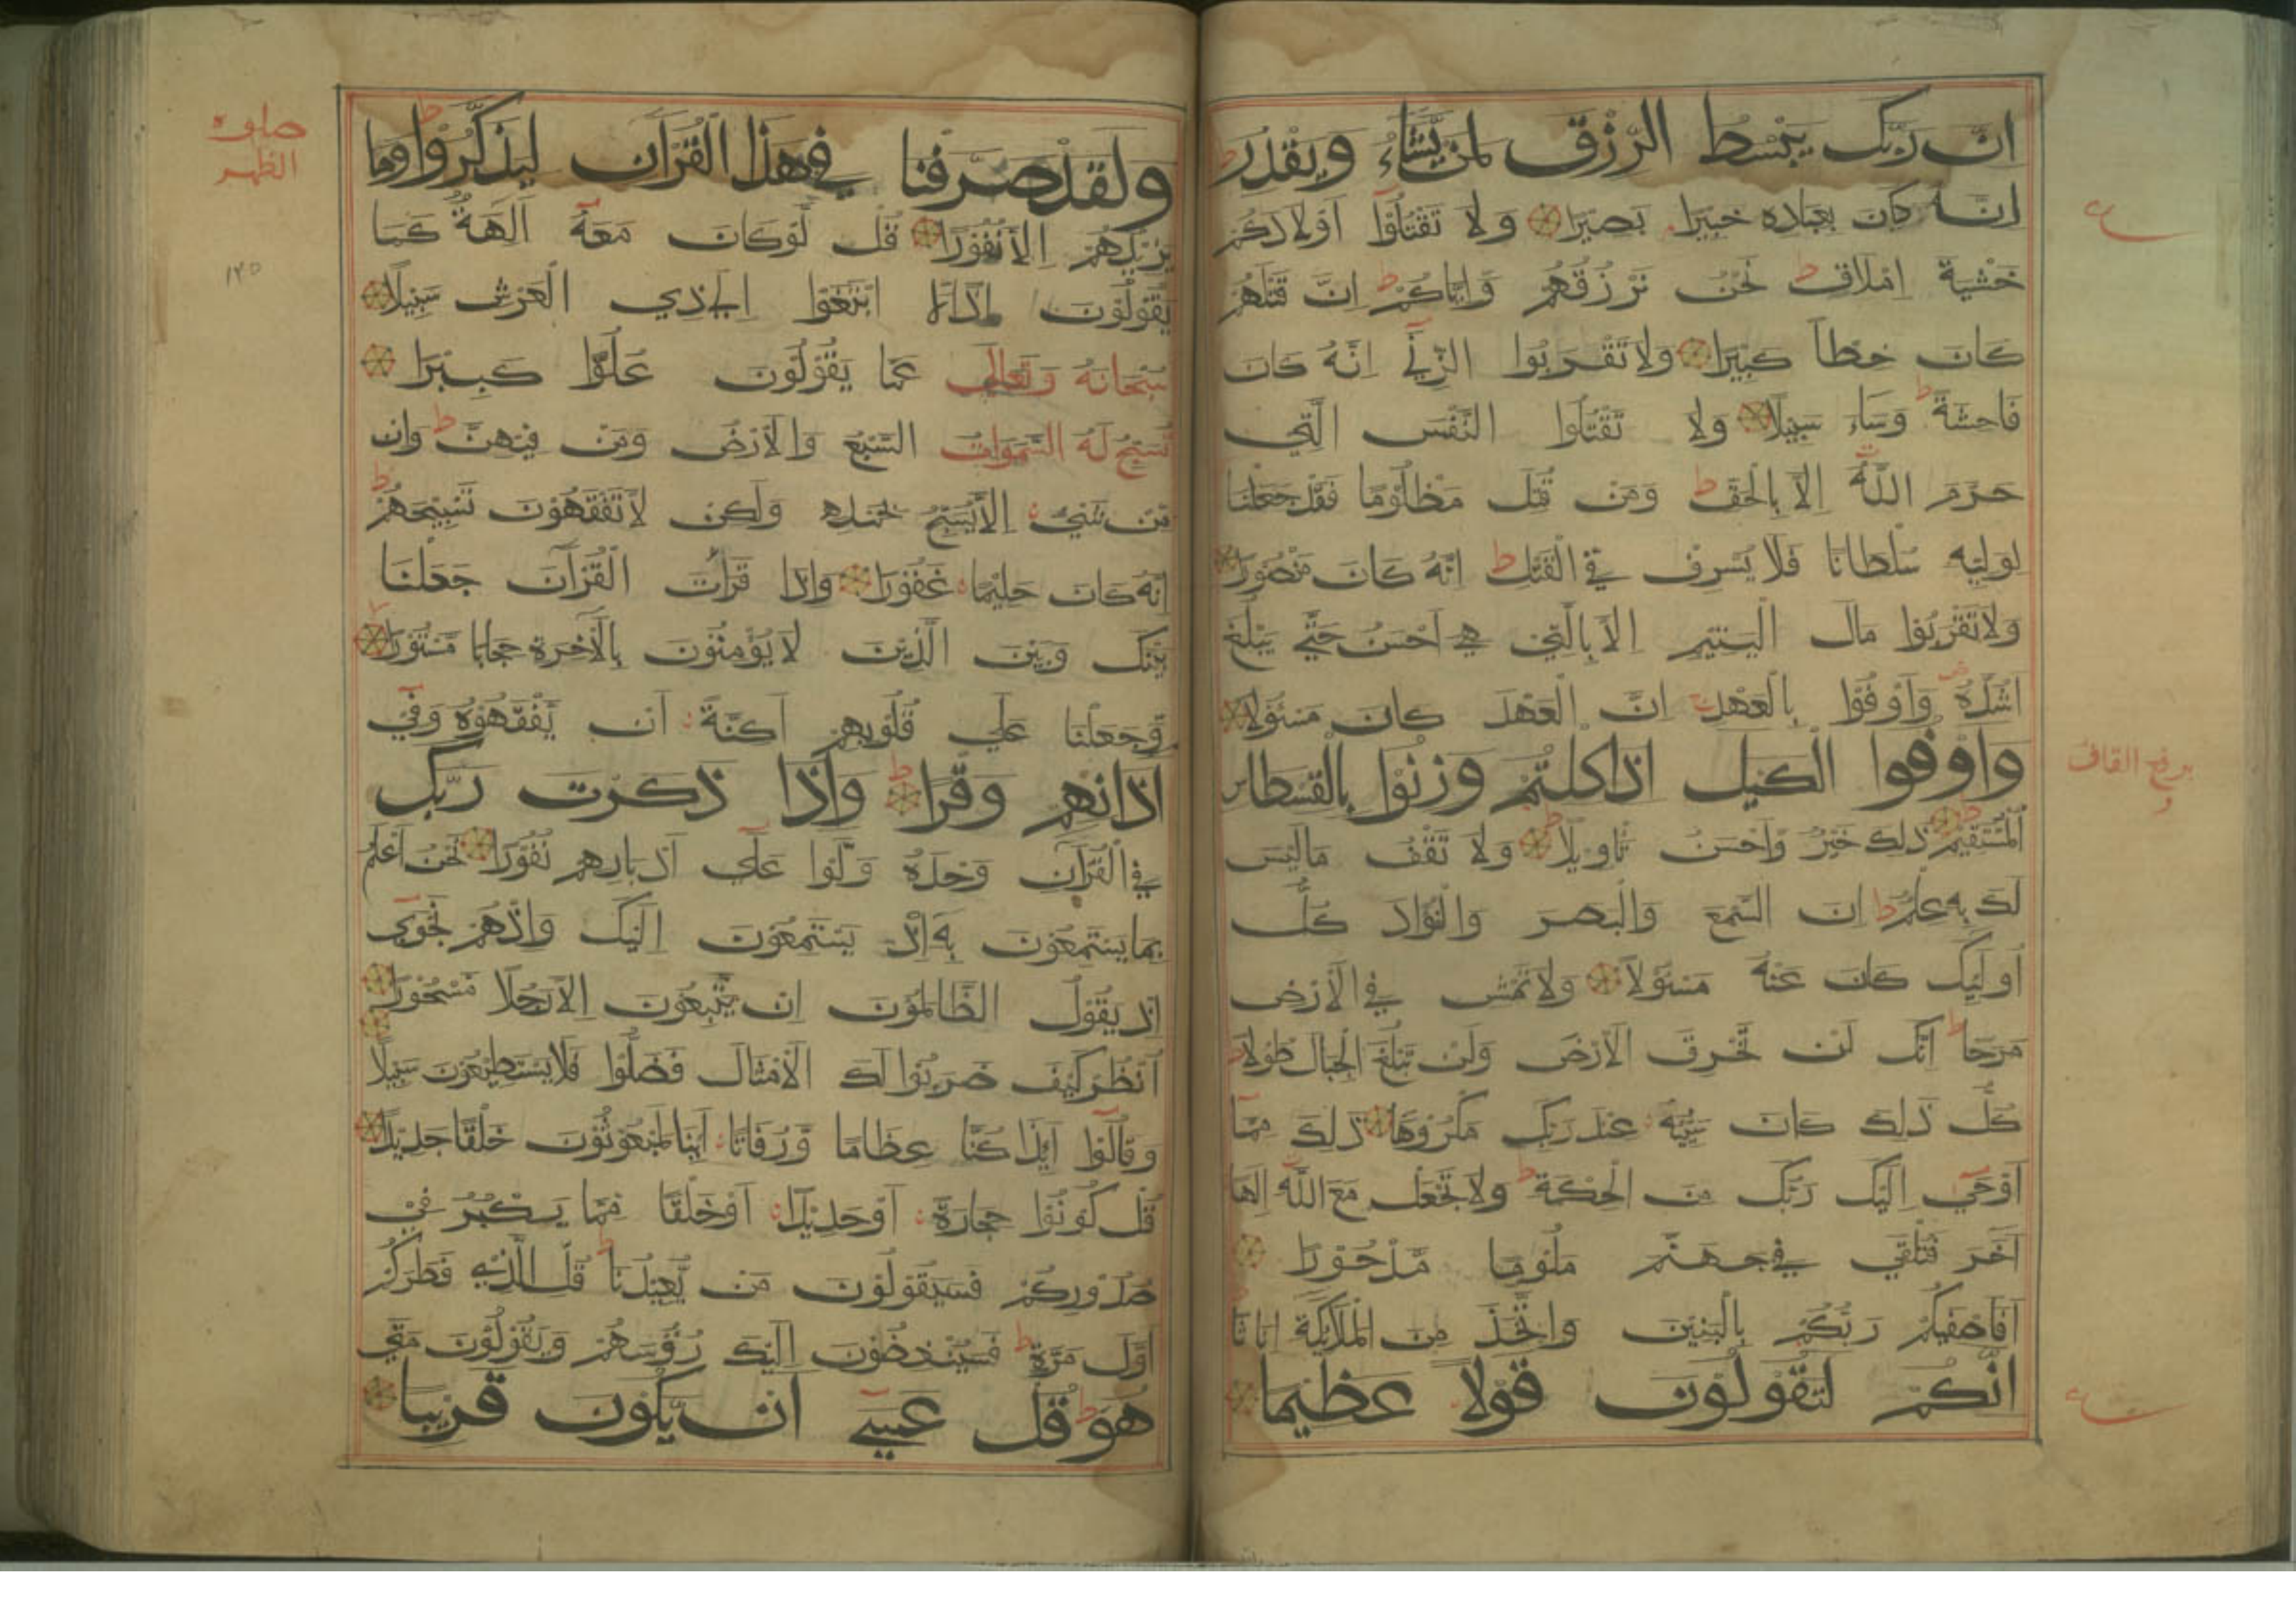 ان ربك يبسط الرزق لمن يشاء ويقدر
انه كان بعباده خبيرا بصيرا ولا تقتلوا اولادكم
خشية املاق نحن نرزقهم واياكم ان قتلهم
كان خطأ كبيرا ولا تقربوا الزني انه كان
فاحشة وساء سبيلا ولا تقتلوا النفس التي
حرم الله الا بالحق ومن قتل مظلوما فقد جعلنا
لوليه سلطانا فلا يسرف في القتل انه كان منصورا
ولا تقربوا مال اليتيم الا بالتي هي احسن حتي يبلغ
اشده واوفوا بالعهد ان العهد كان مسئولا
واوفوا الكيل اذا كلتم وزنوا بالقسطاس
المستقيم ذلك خير واحسن تاويلا ولا تقف ما ليس
لك به علم ان السمع والبصر والفؤاد كل
اولئك كان عنه مسئولا ولا تمش في الارض
مرحا انك لن تخرق الارض ولن تبلغ الجبال طولا
كل ذلك كان سيئه عند ربك مكروها ذلك مما
اوحي اليك ربك من الحكمة ولا تجعل مع الله الها
آخر فتلقي في جهنم ملوما مدحورا
افاصفيكم ربكم بالبنين واتخذ من الملائكة اناثا
انكم لتقولون قولا عظيما
ع
برفع القاف
ع
ولقد صرفنا في هذا القرآن ليذكروا وما
يزيدهم الا نفورا قل لو كان معه آلهة كما
يقولون اذا ابتغوا الي ذي العرش سبيلا
سبحانه وتعالي عما يقولون علوا كبيرا
تسبح له السموات السبع والارض ومن فيهن وان
من شيء الا يسبح بحمده ولكن لا تفقهون تسبيحهم
انه كان حليما غفورا واذا قرأت القرآن جعلنا
بينك وبين الذين لا يؤمنون بالآخرة حجابا مستورا
وجعلنا علي قلوبهم اكنة ان يفقهوه وفي
آذانهم وقرا واذا ذكرت ربك
في القرآن وحده ولوا علي ادبارهم نفورا نحن اعلم
بما يستمعون به اذ يستمعون اليك واذ هم نجوي
اذ يقول الظالمون ان يتبعون الا رجلا مسحورا
انظر كيف ضربوا لك الامثال فضلوا فلا يستطيعون سبيلا
وقالوا ائذا كنا عظاما ورفاتا ائنا لمبعوثون خلقا جديدا
قل كونوا حجارة او حديدا او خلقا مما يكبر في
صدوركم فسيقولون من يعيدنا قل الذي فطركم
اول مرة فسينغضون اليك رؤسهم ويقولون متي
هو قل عسي ان يكون قريبا
صلوة
الظهر